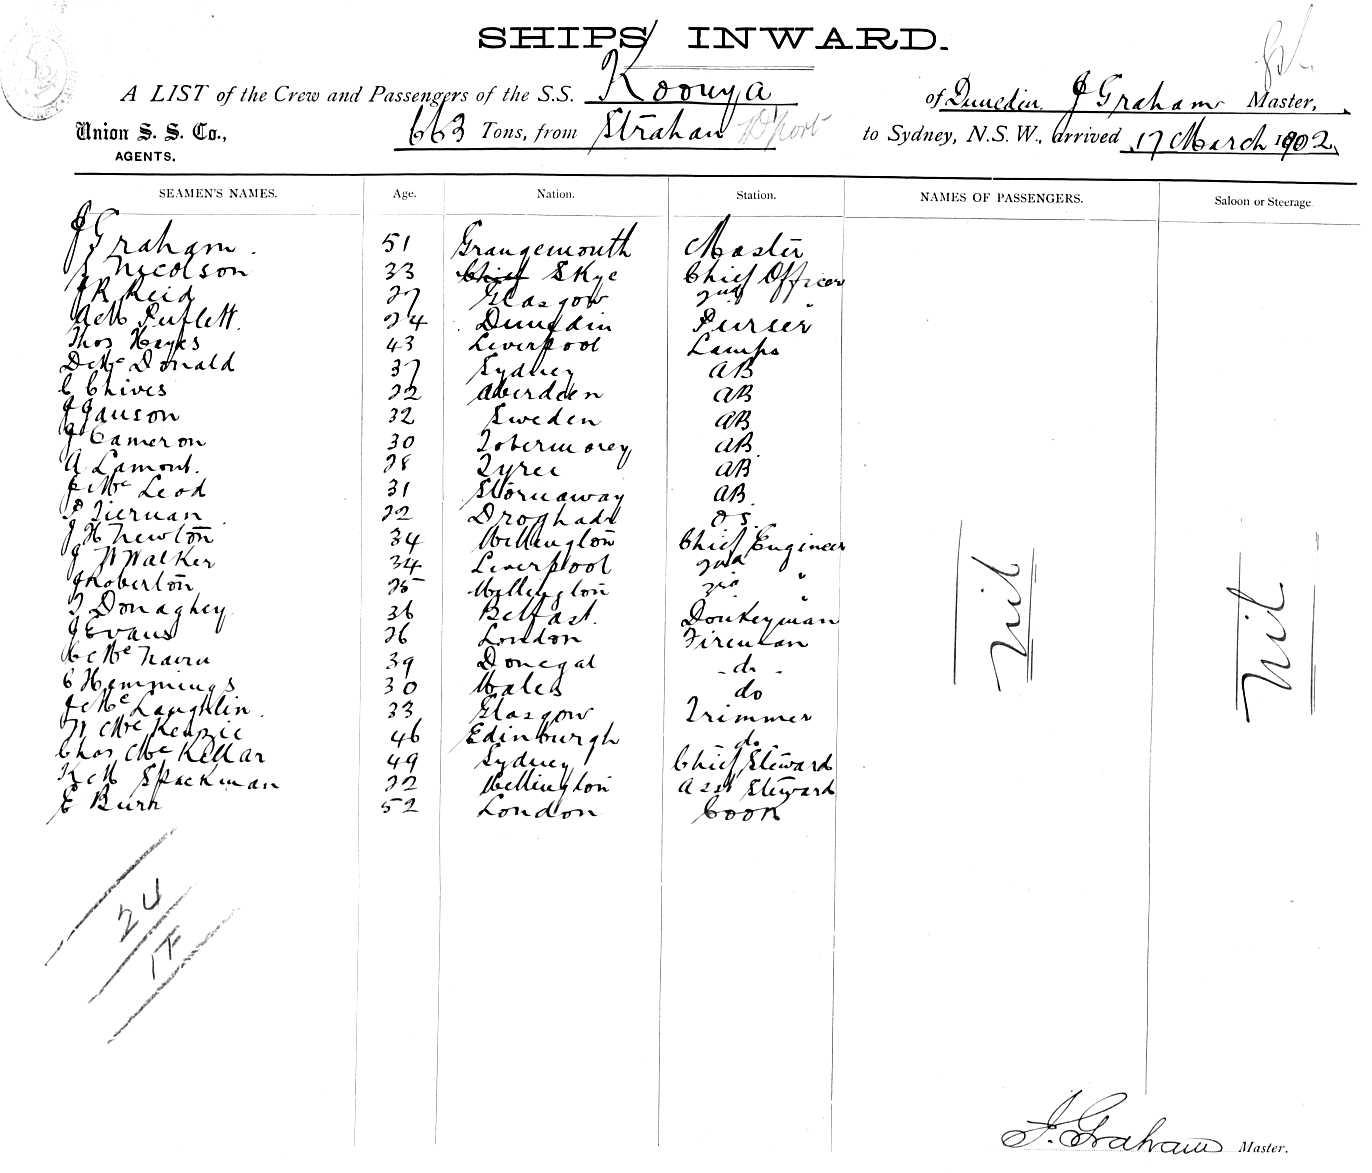 SHIPS INWARD.
A LIST of the Crew and Passengers of the S.S. Koonya of Dunedin J Graham Master,
Union S. S. Co., 663 Tons, from Strahan to Sydney, N.S.W., arrived 17 March 1902
AGENTS.
SEAMEN'S NAMES. Age. Nation. Station. NAMES OF PASSENGERS. Saloon or Steerage
J Graham. 51 Grangemouth Master
Nicolson 33 Chief Skye Chief Officer
J R Reid 27 Glasgow 2nd "
24 Dunedin Purser
Thos Hayes 43 Liverpool Lamps
D McDonald 37 Sydney AB
C Chives 22 Aberdeen AB
J Janson 32 Sweden AB
J Cameron 30 Tobermorey AB
A Lamont. 28 Tyree AB
J McLeod 31 Stornaway AB
P Tiernan 22 Droghada OS.
J H Newton 34 Wellington Chief Engineer
J W Walker 34 Liverpool 2nd "
J Roberton 25 Wellington 3rd "
T Donaghey 36 Belfast. Donkeyman
J Evans 26 London Fireman
39 Donegal - do -
C Hemmings 30 Wales do
J McLaughlin. 33 Glasgow Trimmer
W McKenzie 46 Edinburgh do
Chas McKellar 49 Sydney Chief Steward
Spackman 22 Wellington Asst Steward
E Burn 52 London Cook
Nil Nil
24
J. Graham Master.